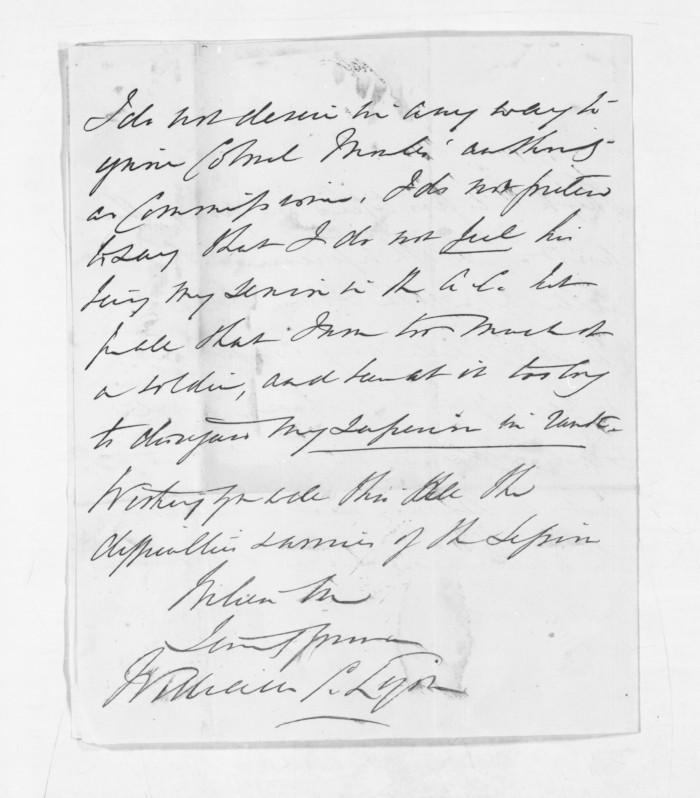 I do not desire in any way to
ignore Colonel authority
as Commissioner, I do not pretend
to say that I do not feel his
being my senior in the A.C. but
that I am too much of
a soldier, and been at it too long
to disregard my superior in rank.
Wishing you all this the
difficulties of the
Believe Me
Yours
William C. Lyon